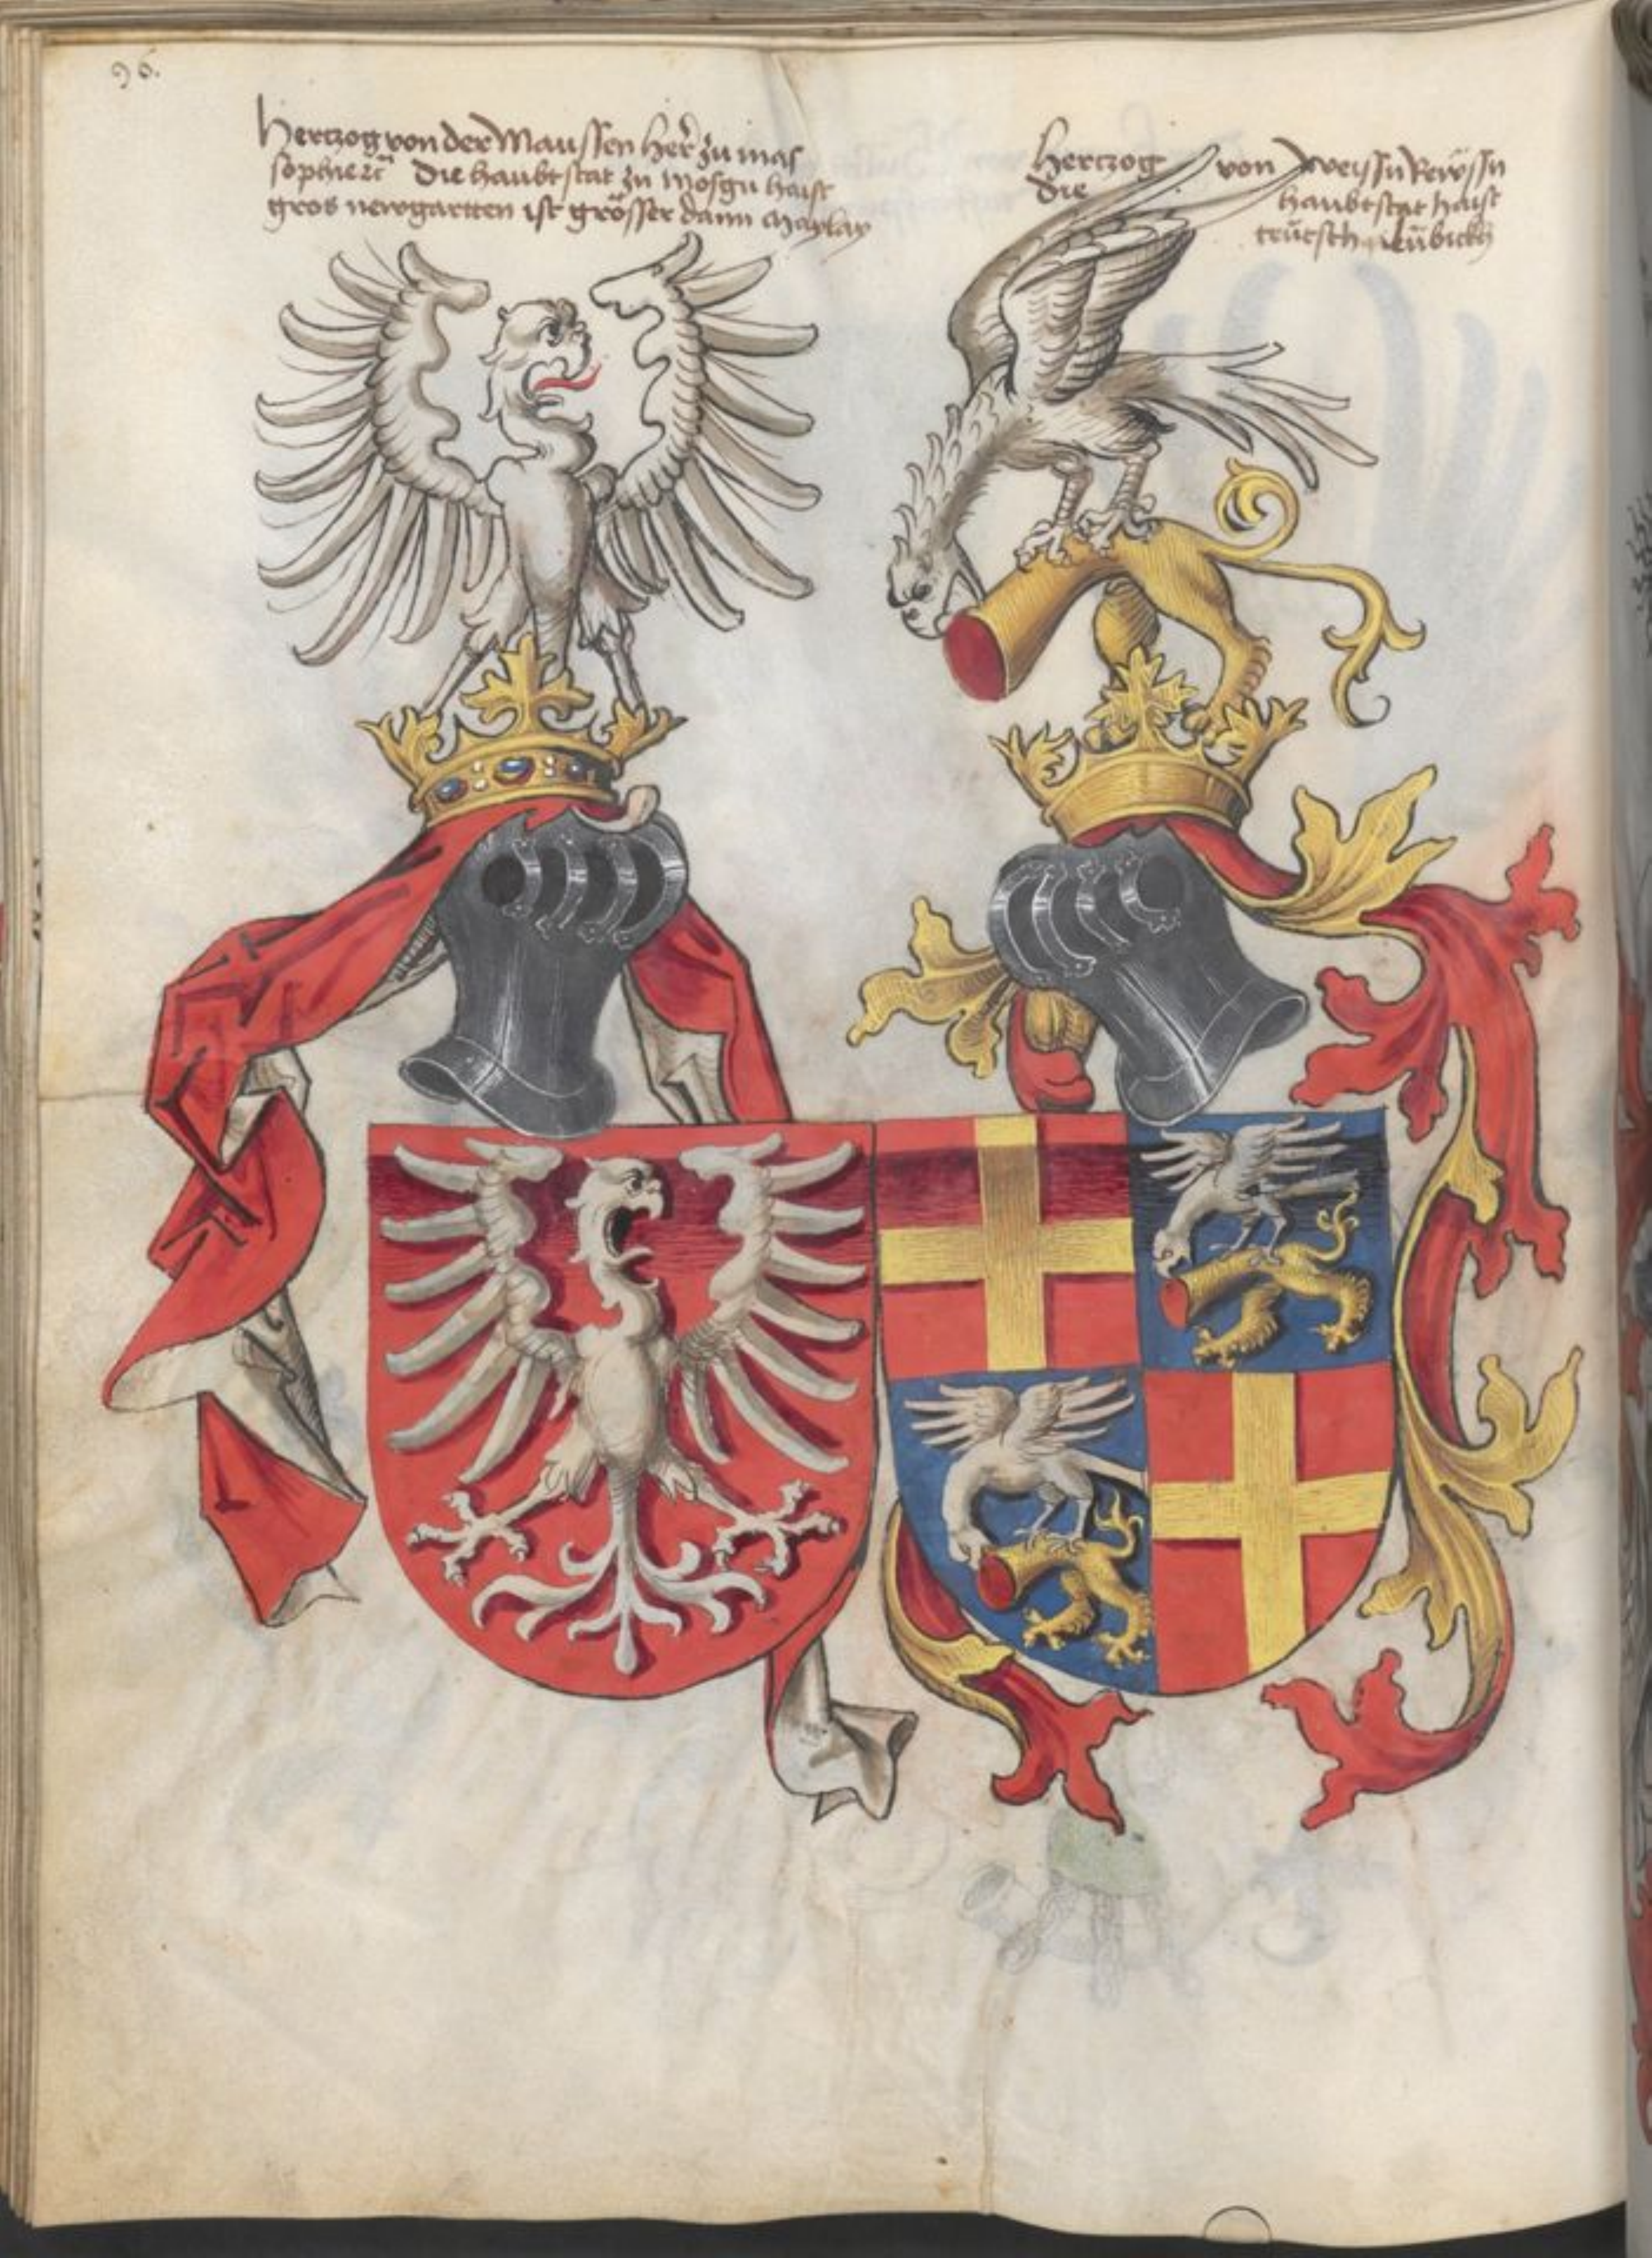 96.
Hertzog von der Maussen her zu mas
sophierē die haubtstat zu Mosgu haist
gros newgartten ist grösser dann Maylan
Hertzog von Weissn Rewssn
die haubtstat haist